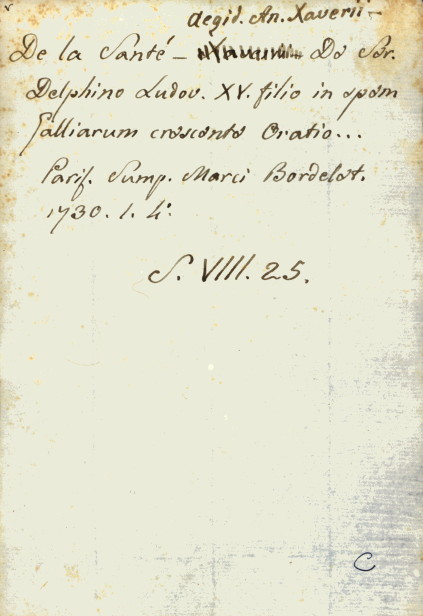 Aegid. An. Xaverii
De la Santé - De Ser.
Delphino Ludov. XV. filio in spem
Galliarum crescente Oratio...
Paris. Sump. Marci Bordelet.
1730. 1. 4°.
S. VIII. 25.
C